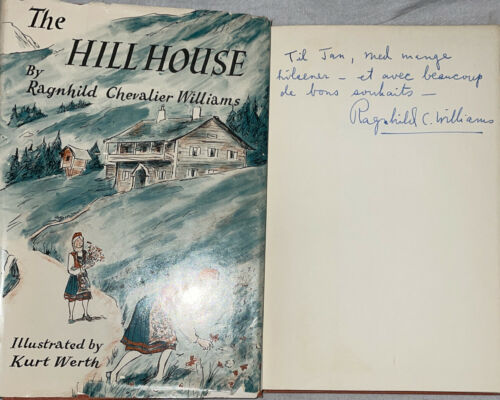 The
HILL HOUSE
By
Ragnhild Chevalier Williams
Illustrated by
Kurt Werth
Til Jan, med mange
hilsener - et avec beaucoup
de bons souhaits -
Ragnhild C. Williams